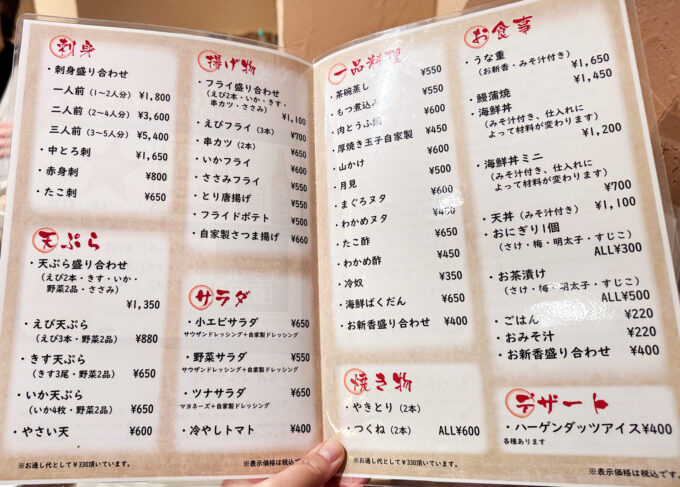 刺身
・刺身盛り合わせ
一人前 (1〜2人分) ¥1,800
二人前 (2〜4人分) ¥3,600
三人前 (3〜5人分) ¥5,400
・中とろ刺 ¥1,650
・赤身刺 ¥800
・たこ刺 ¥650
天ぷら
・天ぷら盛り合わせ
(えび2本・きす・いか・
野菜2品・ささみ)
¥1,350
・えび天ぷら
(えび3本・野菜2品) ¥880
・きす天ぷら
(きす3尾・野菜2品) ¥650
・いか天ぷら
(いか4枚・野菜2品) ¥650
・やさい天 ¥600
※お通し代として¥330頂いています。
揚げ物
・フライ盛り合わせ
(えび2本・いか・きす・
串カツ・ささみ) ¥1,100
・えびフライ (3本) ¥700
・串カツ (2本) ¥650
・いかフライ ¥550
・ささみフライ ¥550
・とり唐揚げ ¥550
・フライドポテト ¥500
・自家製さつま揚げ ¥660
サラダ
・小エビサラダ ¥650
サウザンドレッシング+自家製ドレッシング
・野菜サラダ ¥550
サウザンドレッシング+自家製ドレッシング
・ツナサラダ ¥650
マヨネーズ+自家製ドレッシング
・冷やしトマト ¥400
※表示価格は税込です。
一品料理
・茶碗蒸し ¥550
・もつ煮込み ¥550
・肉とうふ ¥600
・厚焼き玉子自家製 ¥450
・山かけ ¥600
・月見 ¥500
・まぐろヌタ ¥600
・わかめヌタ
・たこ酢 ¥650
・わかめ酢 ¥450
・冷奴 ¥350
・海鮮ばくだん ¥650
・お新香盛り合わせ ¥400
焼き物
・やきとり (2本)
・つくね (2本) ALL¥600
※お通し代として¥330頂いています。
お食事
・うな重 ¥1,650
(お新香・みそ汁付き)
¥1,450
・鰻蒲焼
・海鮮丼
(みそ汁付き、仕入れに
よって材料が変わります)
¥1,200
・海鮮丼ミニ
(みそ汁付き、仕入れに
よって材料が変わります)
¥700
・天丼 (みそ汁付き) ¥1,100
・おにぎり1個
(さけ・梅・明太子・すじこ)
ALL¥300
・お茶漬け
(さけ・梅・明太子・すじこ)
ALL¥500
・ごはん ¥220
・おみそ汁 ¥220
・お新香盛り合わせ ¥400
デザート
・ハーゲンダッツアイス ¥400
各種あります
※表示価格は税込です。